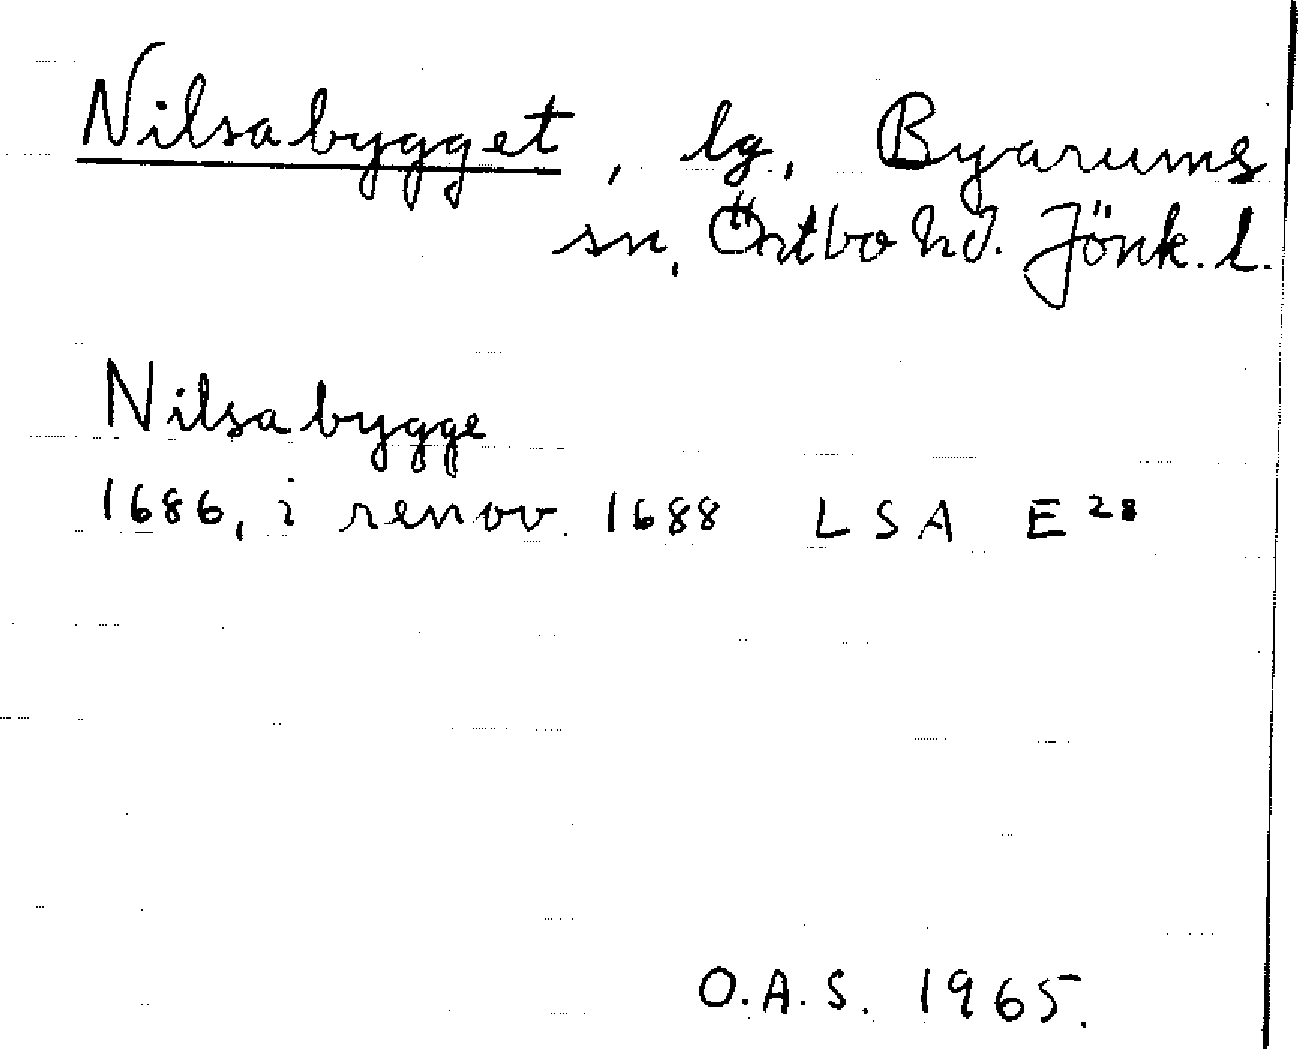 Nilsabygget, lg, Byarums
sn, Östbo hd. Jönk. l.
Nilsabygge
1686, i renov. 1688 LSA E²⁸
O.A.S. 1965.